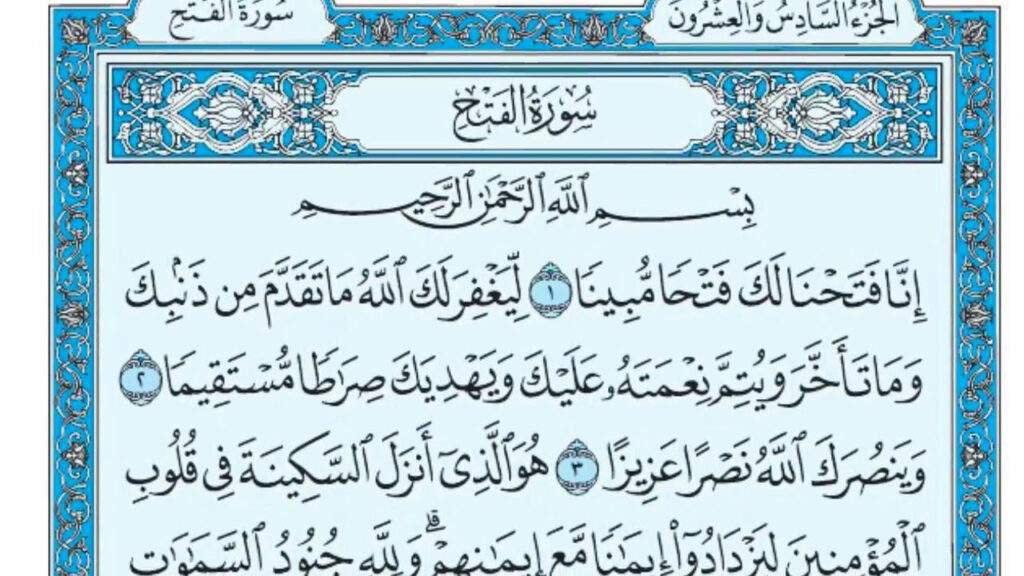 الجُزْءُ السَّادِسُ وَالعِشْرُونَ
سُورَةُ الفَتْحِ
سُورَةُ الفَتْحِ
بِسْمِ ٱللَّهِ ٱلرَّحْمَٰنِ ٱلرَّحِيمِ
إِنَّا فَتَحْنَا لَكَ فَتْحًا مُّبِينًا ١ لِّيَغْفِرَ لَكَ ٱللَّهُ مَا تَقَدَّمَ مِن ذَنۢبِكَ
وَمَا تَأَخَّرَ وَيُتِمَّ نِعْمَتَهُۥ عَلَيْكَ وَيَهْدِيَكَ صِرَٰطًا مُّسْتَقِيمًا ٢
وَيَنصُرَكَ ٱللَّهُ نَصْرًا عَزِيزًا ٣ هُوَ ٱلَّذِىٓ أَنزَلَ ٱلسَّكِينَةَ فِى قُلُوبِ
ٱلْمُؤْمِنِينَ لِيَزْدَادُوٓا۟ إِيمَٰنًا مَّعَ إِيمَٰنِهِمْ ۗ وَلِلَّهِ جُنُودُ ٱلسَّمَٰوَٰتِ